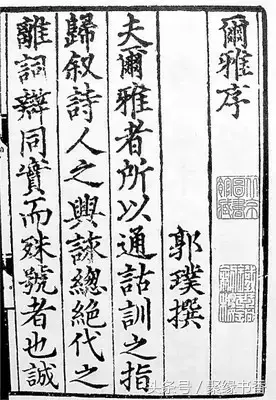 爾雅序
郭璞撰
夫爾雅者所以通詁訓之指
歸叙詩人之興詠總絶代之
離詞辯同實而殊號者也誠
头条号 / 聚缘书香